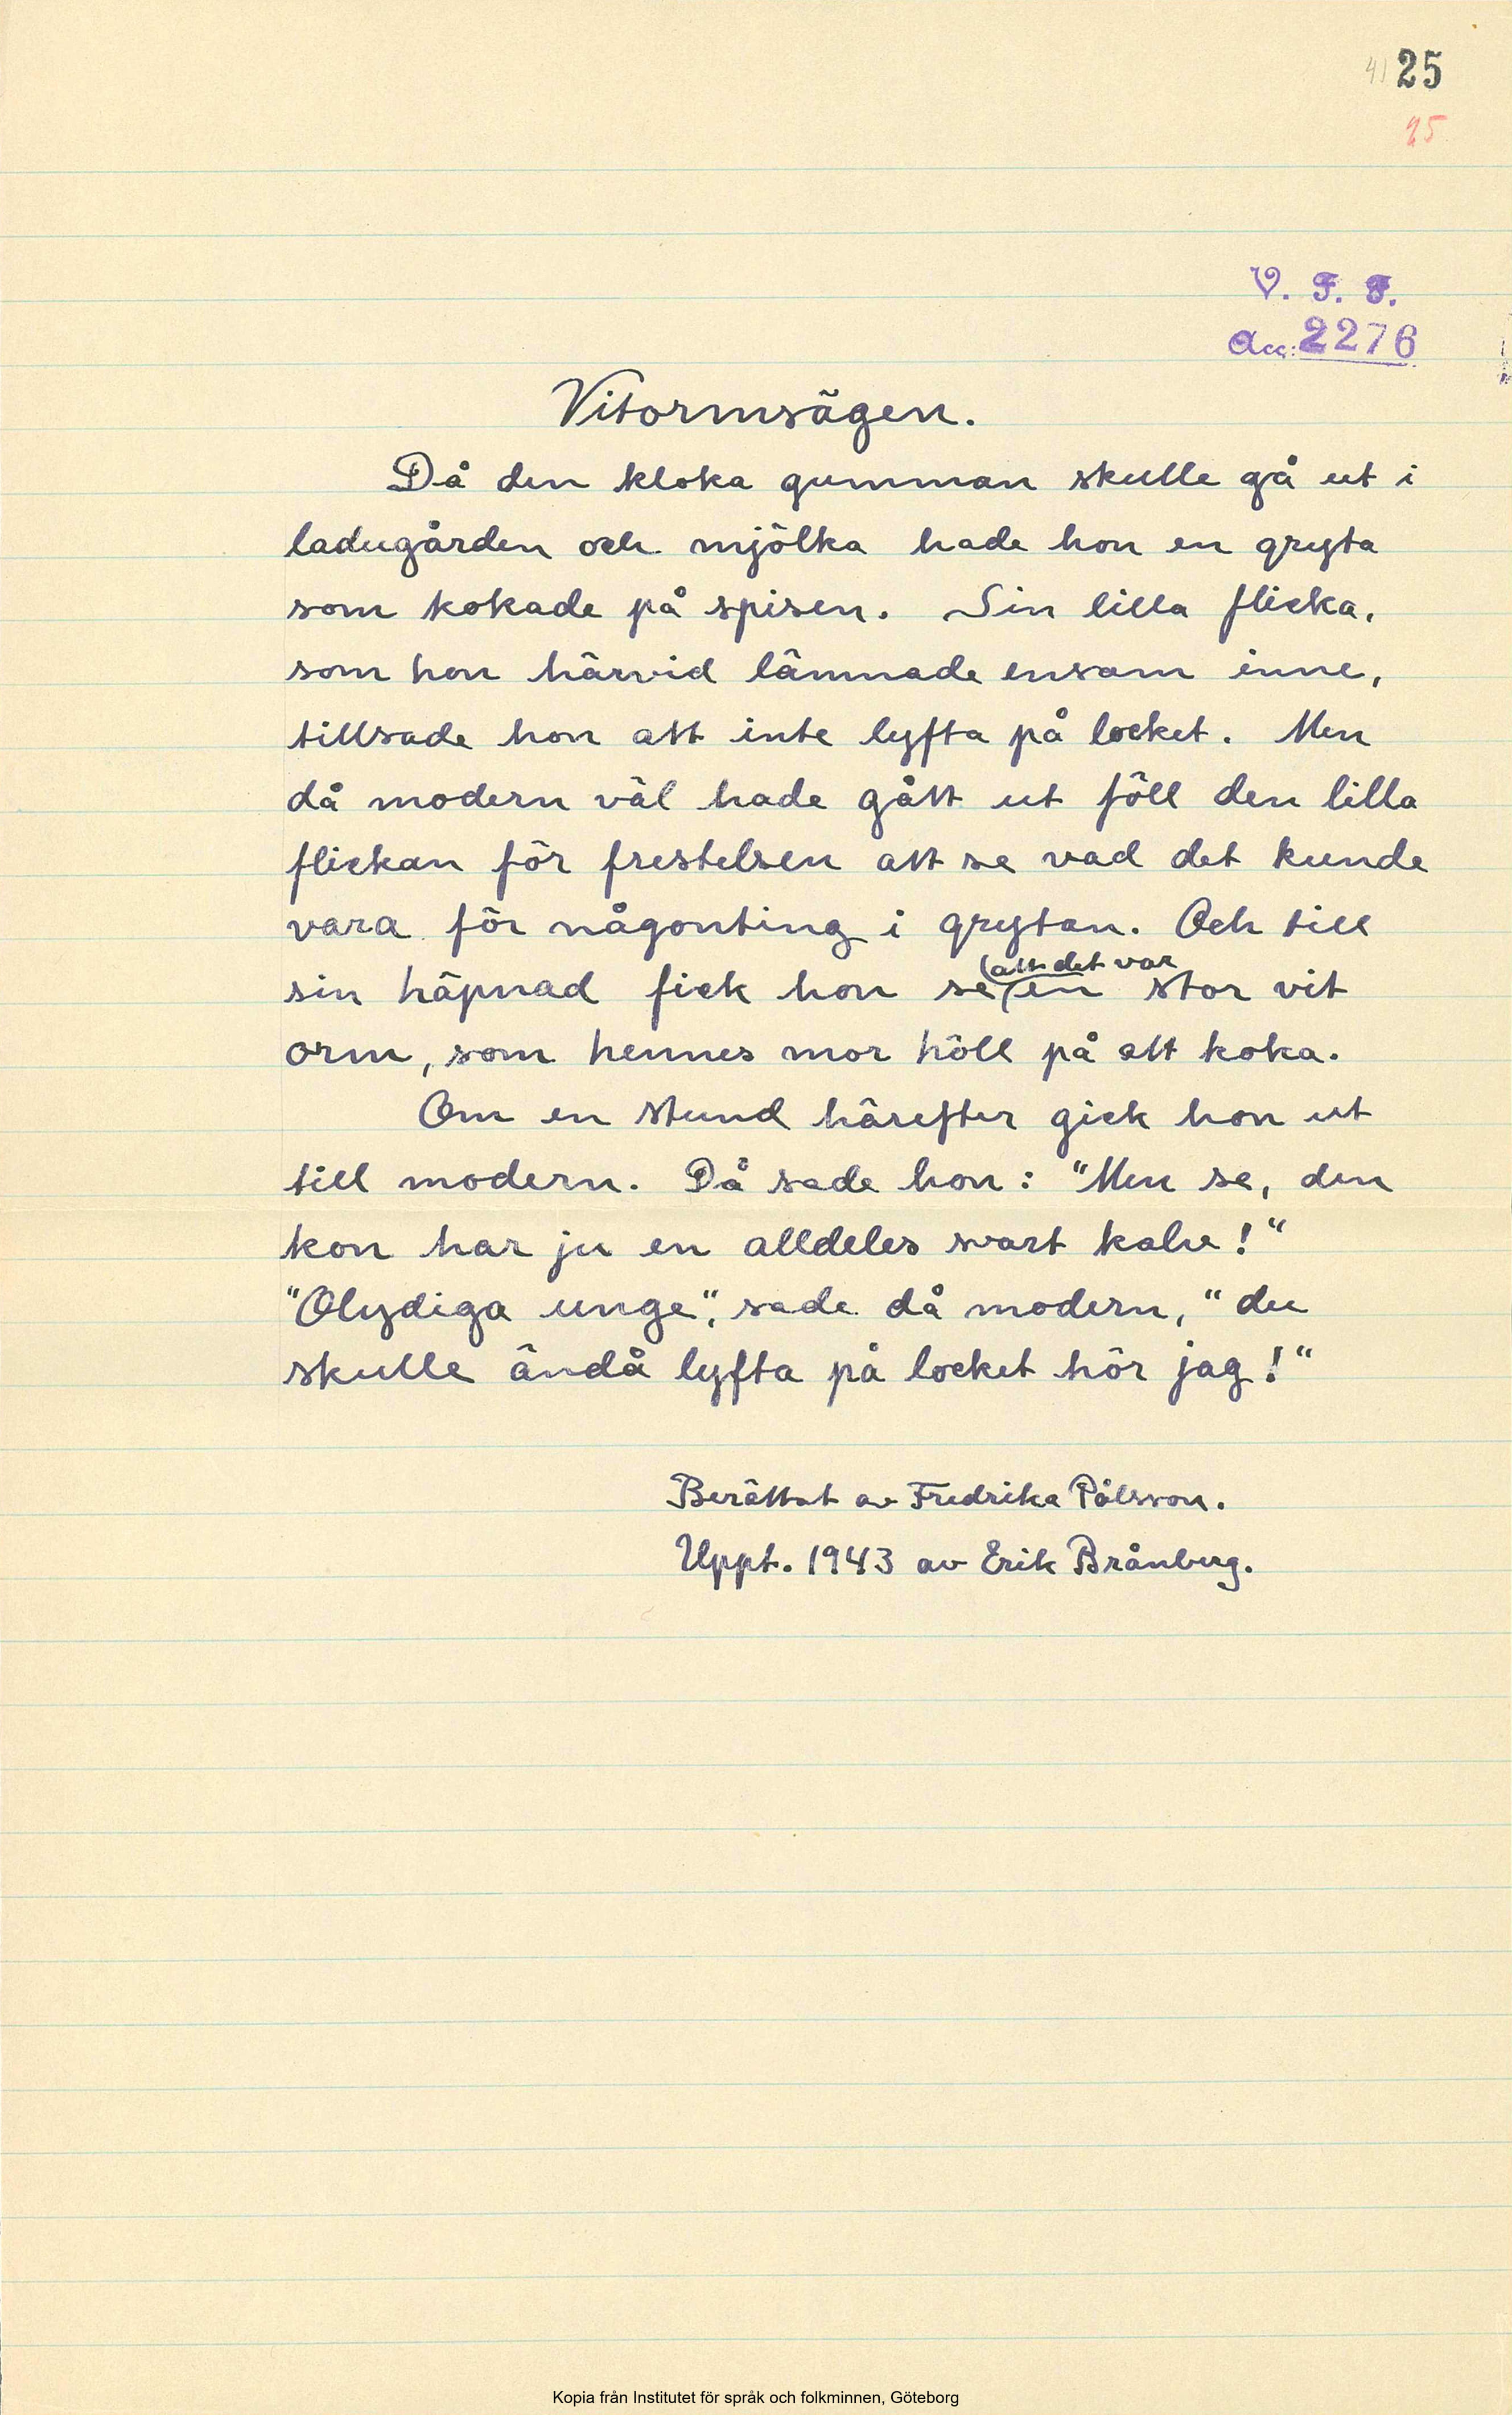 41 25
25
V. F. F.
Acc: 2276
Vitormsägen.
Då den kloka gumman skulle gå ut i
ladugården och mjölka hade hon en gryta
som kokade på spisen. Sin lilla flicka,
som hon härvid lämnade ensam inne,
tillsade hon att inte lyfta på locket. Men
då modern väl hade gått ut föll den lilla
flickan för frestelsen att se vad det kunde
vara för någonting i grytan. Och till
(att det var
sin häpnad fick hon se (en stor vit
orm, som hennes mor höll på att koka.
Om en stund härefter gick hon ut
till modern. Då sade hon: "Men se, den
kon har ju en alldeles svart kalv!"
"Olydiga unge", sade då modern, "du
skulle ändå lyfta på locket hör jag!"
Berättat av Fredrika Pålsson.
Uppt. 1943 av Erik Brånberg.
Kopia från Institutet för språk och folkminnen, Göteborg